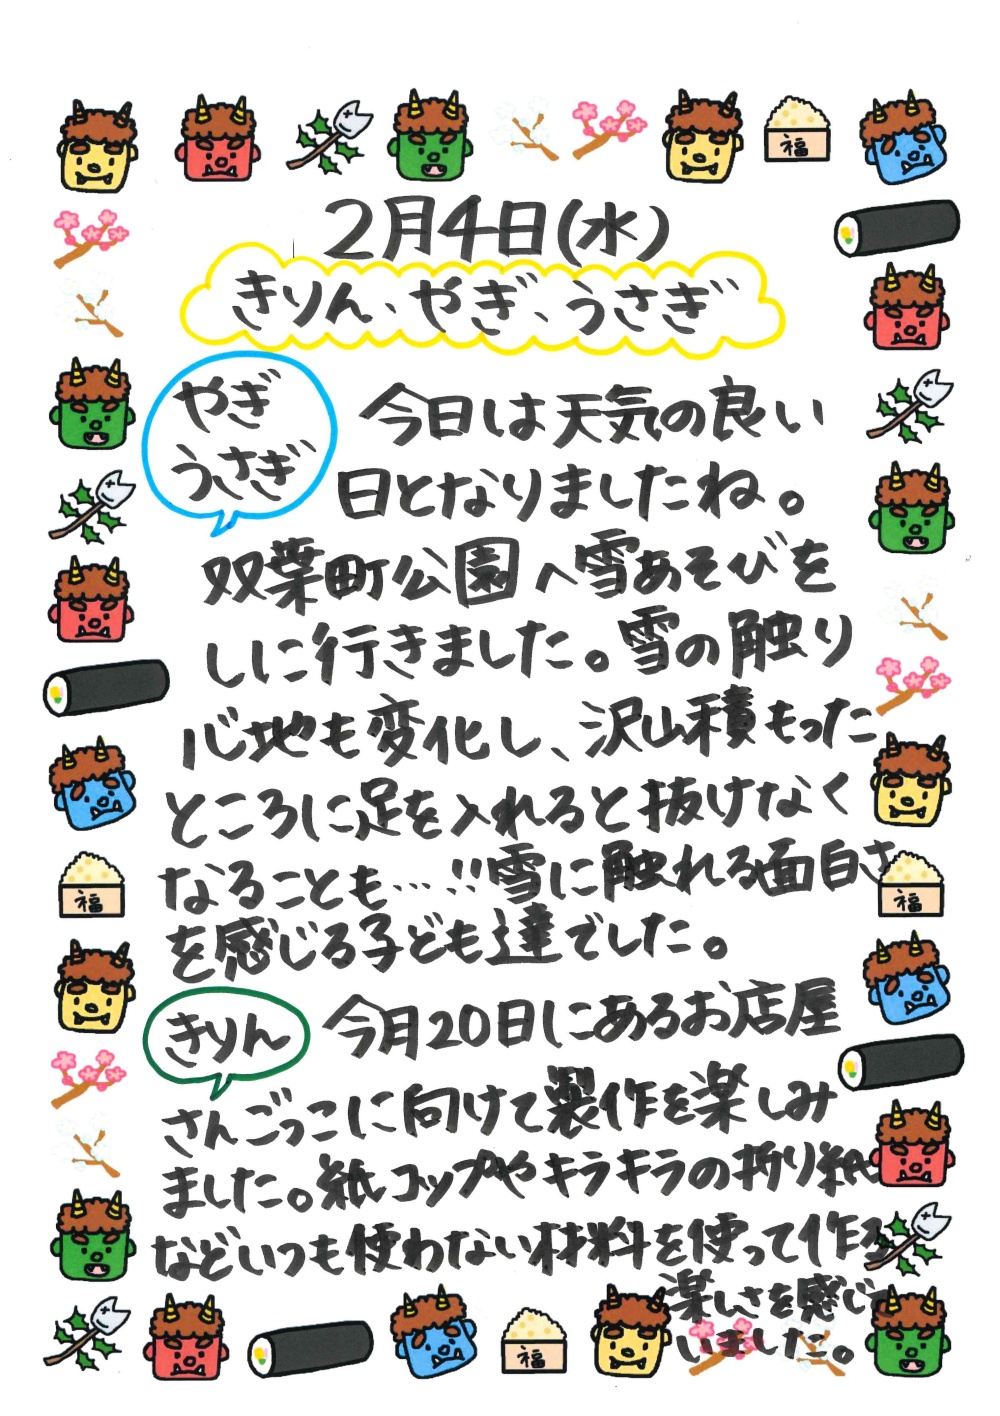 福
2月4日(水)
きりん、やぎ、うさぎ
やぎ
うさぎ
今日は天気の良い
日となりましたね。
双葉町公園へ雪あそびを
しに行きました。雪の触り
心地も変化し、沢山積もった
ところに足を入れると抜けなく
なることも…!!雪に触れる面白さ
を感じる子ども達でした。
福
福
きりん
今月20日にあるお店屋
さんごっこに向けて製作を楽しみ
ました。紙コップやキラキラの折り紙
などいつも使わない材料を使って作る
楽しさを感じて
いました。
福